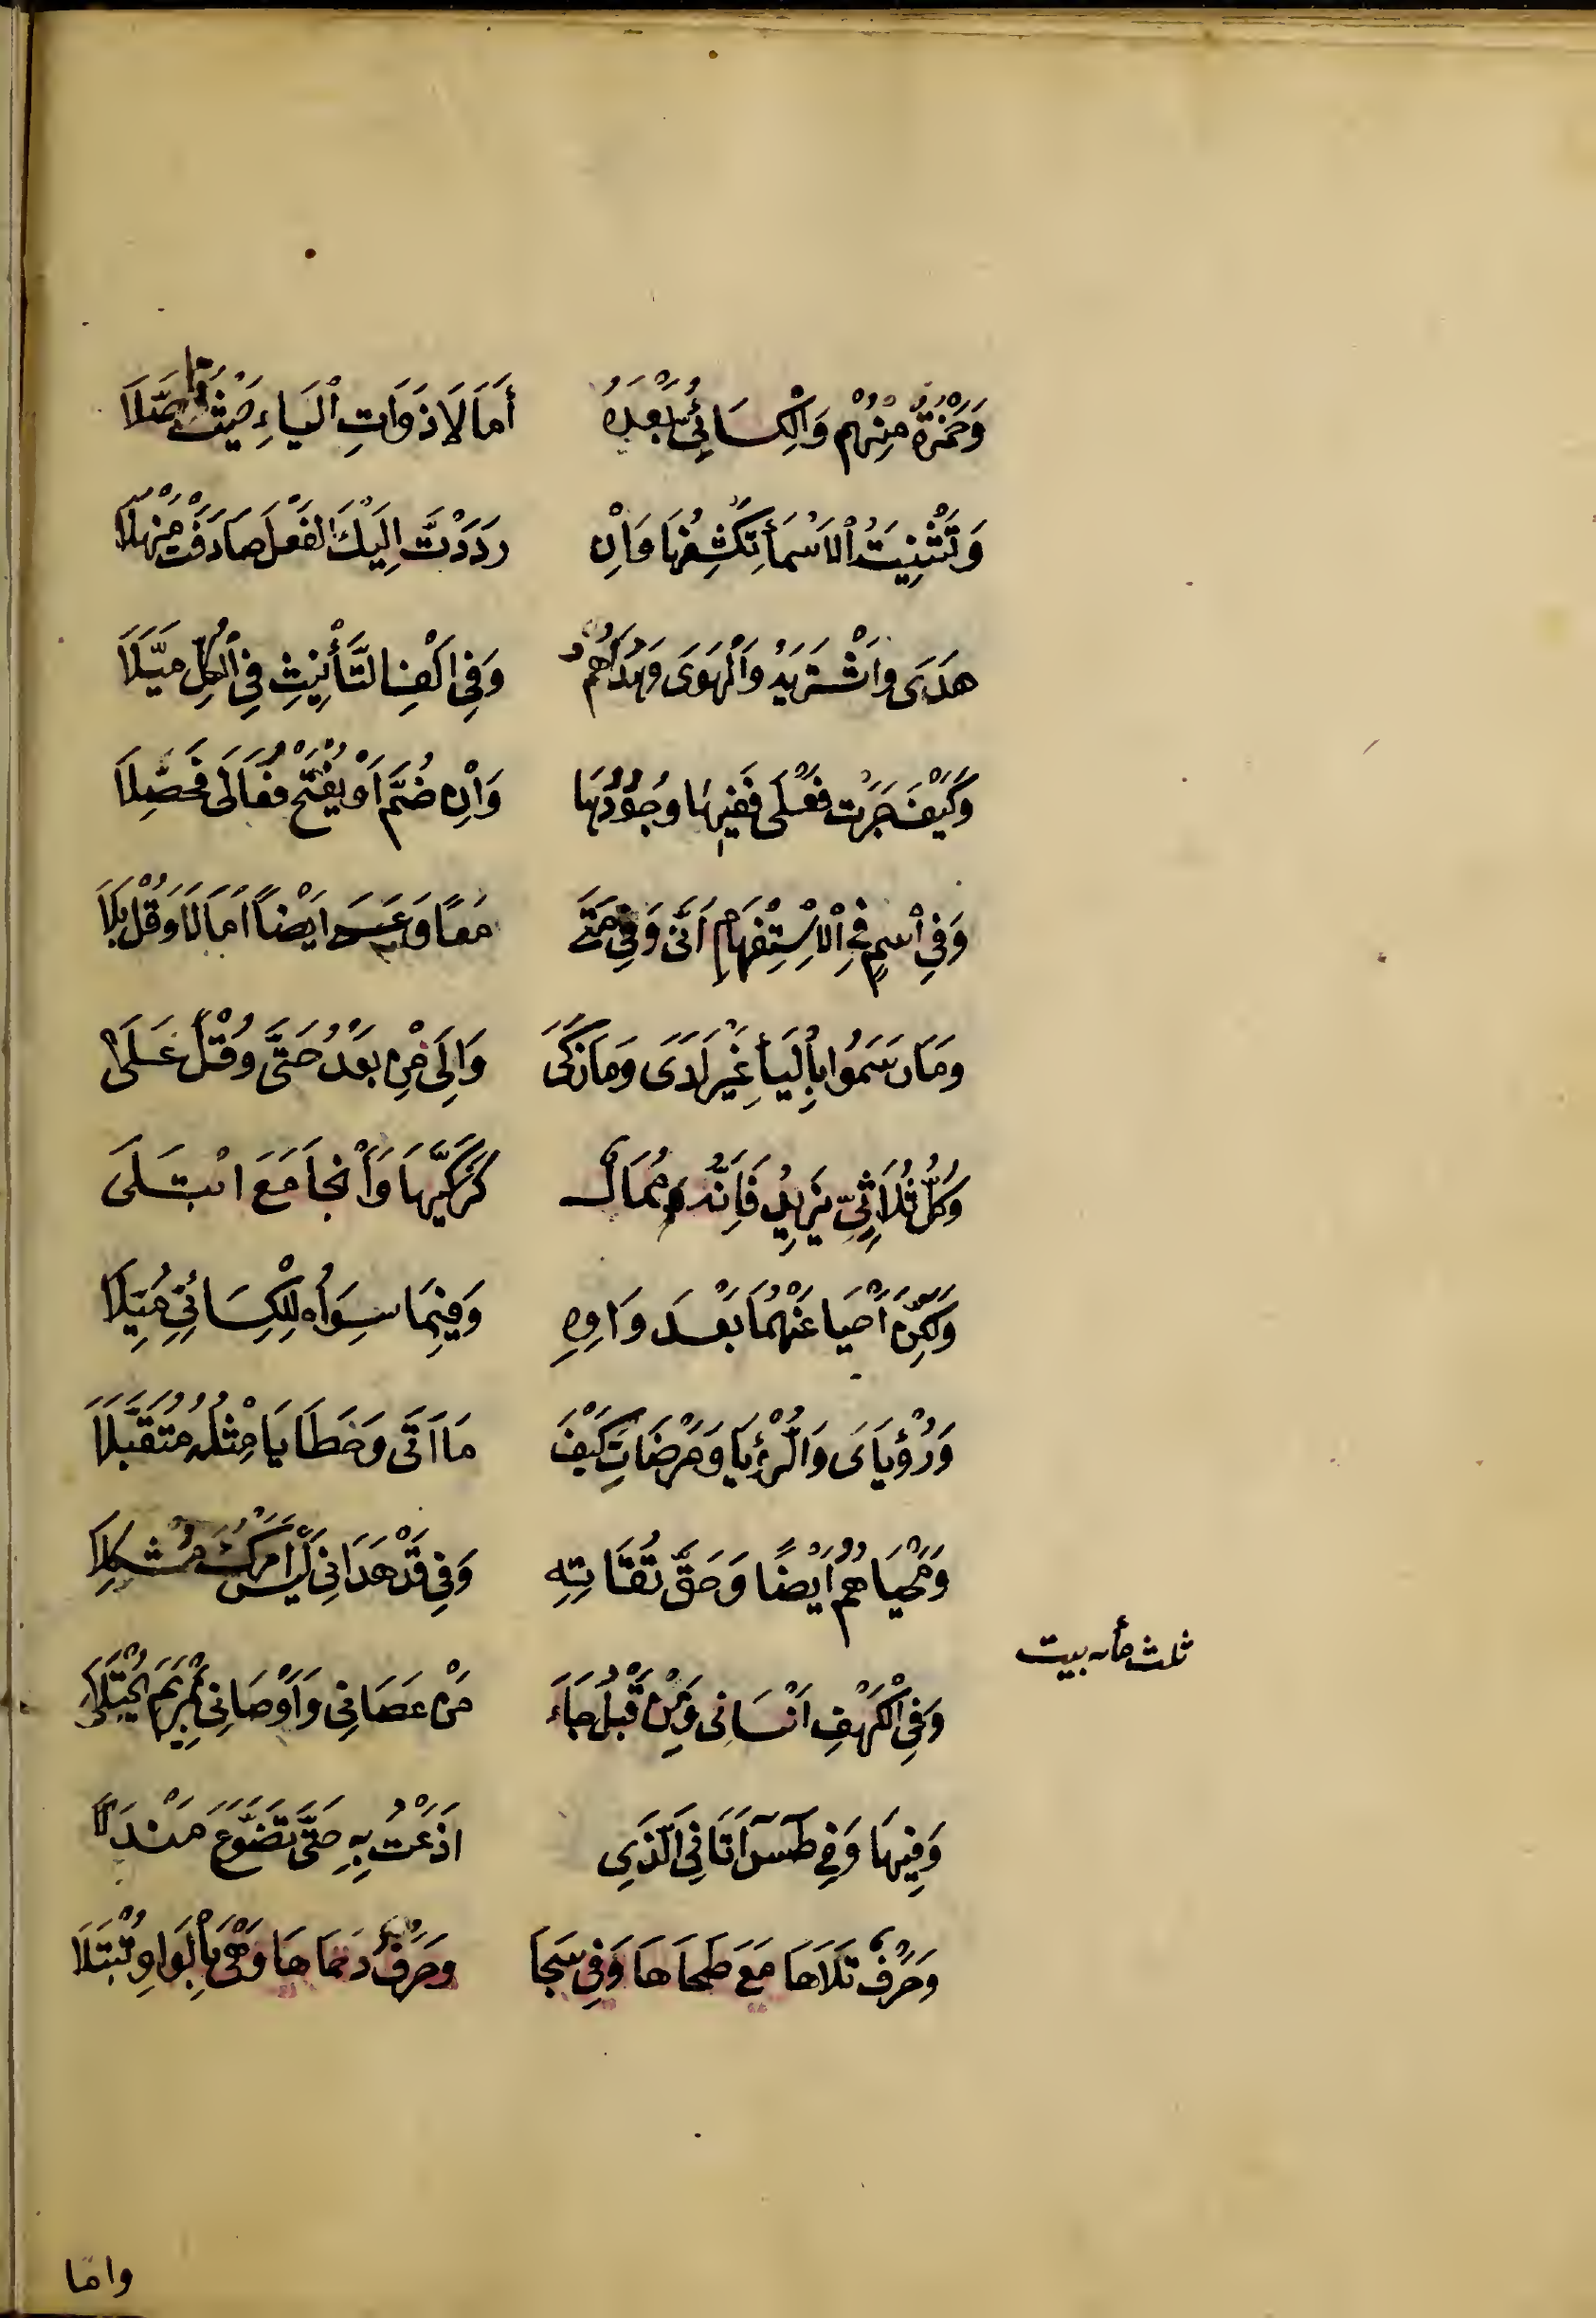 وَحَمْزَةُ مِنْهُمْ وَالْكِسَائِيُّ بَعْدَهُ أَمَالَا ذَوَاتِ الْيَاءِ حَيْثُ تَأَصَّلَا
وَتَثْنِيَتُ الْاَسْمَأِ تَكْشِفُهَا وَاِنْ رَدَدْتَ اِلَيْكَ الْفِعْلَ صَادَفْتَ مَنْهَلَا
هَدَى وَاشْتَرَيهُ وَالْهَوَى وَهُدَاهُمُ وَفِى اَلْفِ التَّأْنِيثِ فِى الْكُلِّ مَيَّلَا
وَكَيْفَ جَرَتْ فَعْلَى فَفِيهَا وُجُودُهَا وَاِنْ ضُمَّ اَوْ يُفْتَحْ فُعَالَى فَحَصِّلَا
وَفِى اسْمٍ فِى الْاِسْتِفْهَامِ اَنَّى وَفِى مَتَى مَعًا وَعَسَى اَيْضًا اَمَالَا وَقُلْ بَلَا
وَمَا رَسَمُوا بِالْيَأِ غَيْرَ لَدَى وَمَا زَكَى وَاِلَى مِنْ بَعْدُ حَتَّى وَقُلْ عَلَى
وَكُلُّ ثُلَاثِىٍّ يَزِيدُ فَاِنَّهُ مُمَالٌ كَزَكَّيهَا وَاَنْجَا مَعَ ابْتَلَى
وَلَكِنَّ اَحْيَا عَنْهُمَا بَعْدَ وَاوِهِ وَفِيمَا سِوَاهُ لِلْكِسَائِىِّ مُيِّلَا
وَرُؤْيَاىَ وَالرُّؤْيَا وَمَرْضَاتِ كَيْفَ مَا اَتَى وَخَطَايَا مِثْلُهُ مُتَقَبَّلَا
وَمَحْيَاهُمُ اَيْضًا وَحَقَّ تُقَاتِهِ وَفِى قَدْ هَدَانِى لَيْسَ اَمْرُكَ مُشْكِلَا
ثلث مأىه بيت
وَفِى الْكَهْفِ اَنْسَانِى وَمِنْ قَبْلُ جَاءَ مَنْ عَصَانِى وَاَوْصَانِى بِمَرْيَمَ يُجْتَلَى
وَفِيهَا وَفِى طٰسٓ اٰتَانِىَ الَّذِى اَذَعْتُ بِهِ حَتَّى تَضَوَّعَ مَنْدَلَا
وَحَرْفُ تَلَاهَا مَعَ طَحَاهَا وَفِى سَجَا وَحَرْفُ دَحَاهَا وَهْىَ بِالْوَاوِ تُبْتَلَا
واما